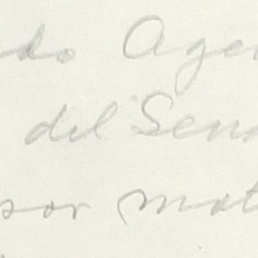 do Agen
del Sena
sor mat